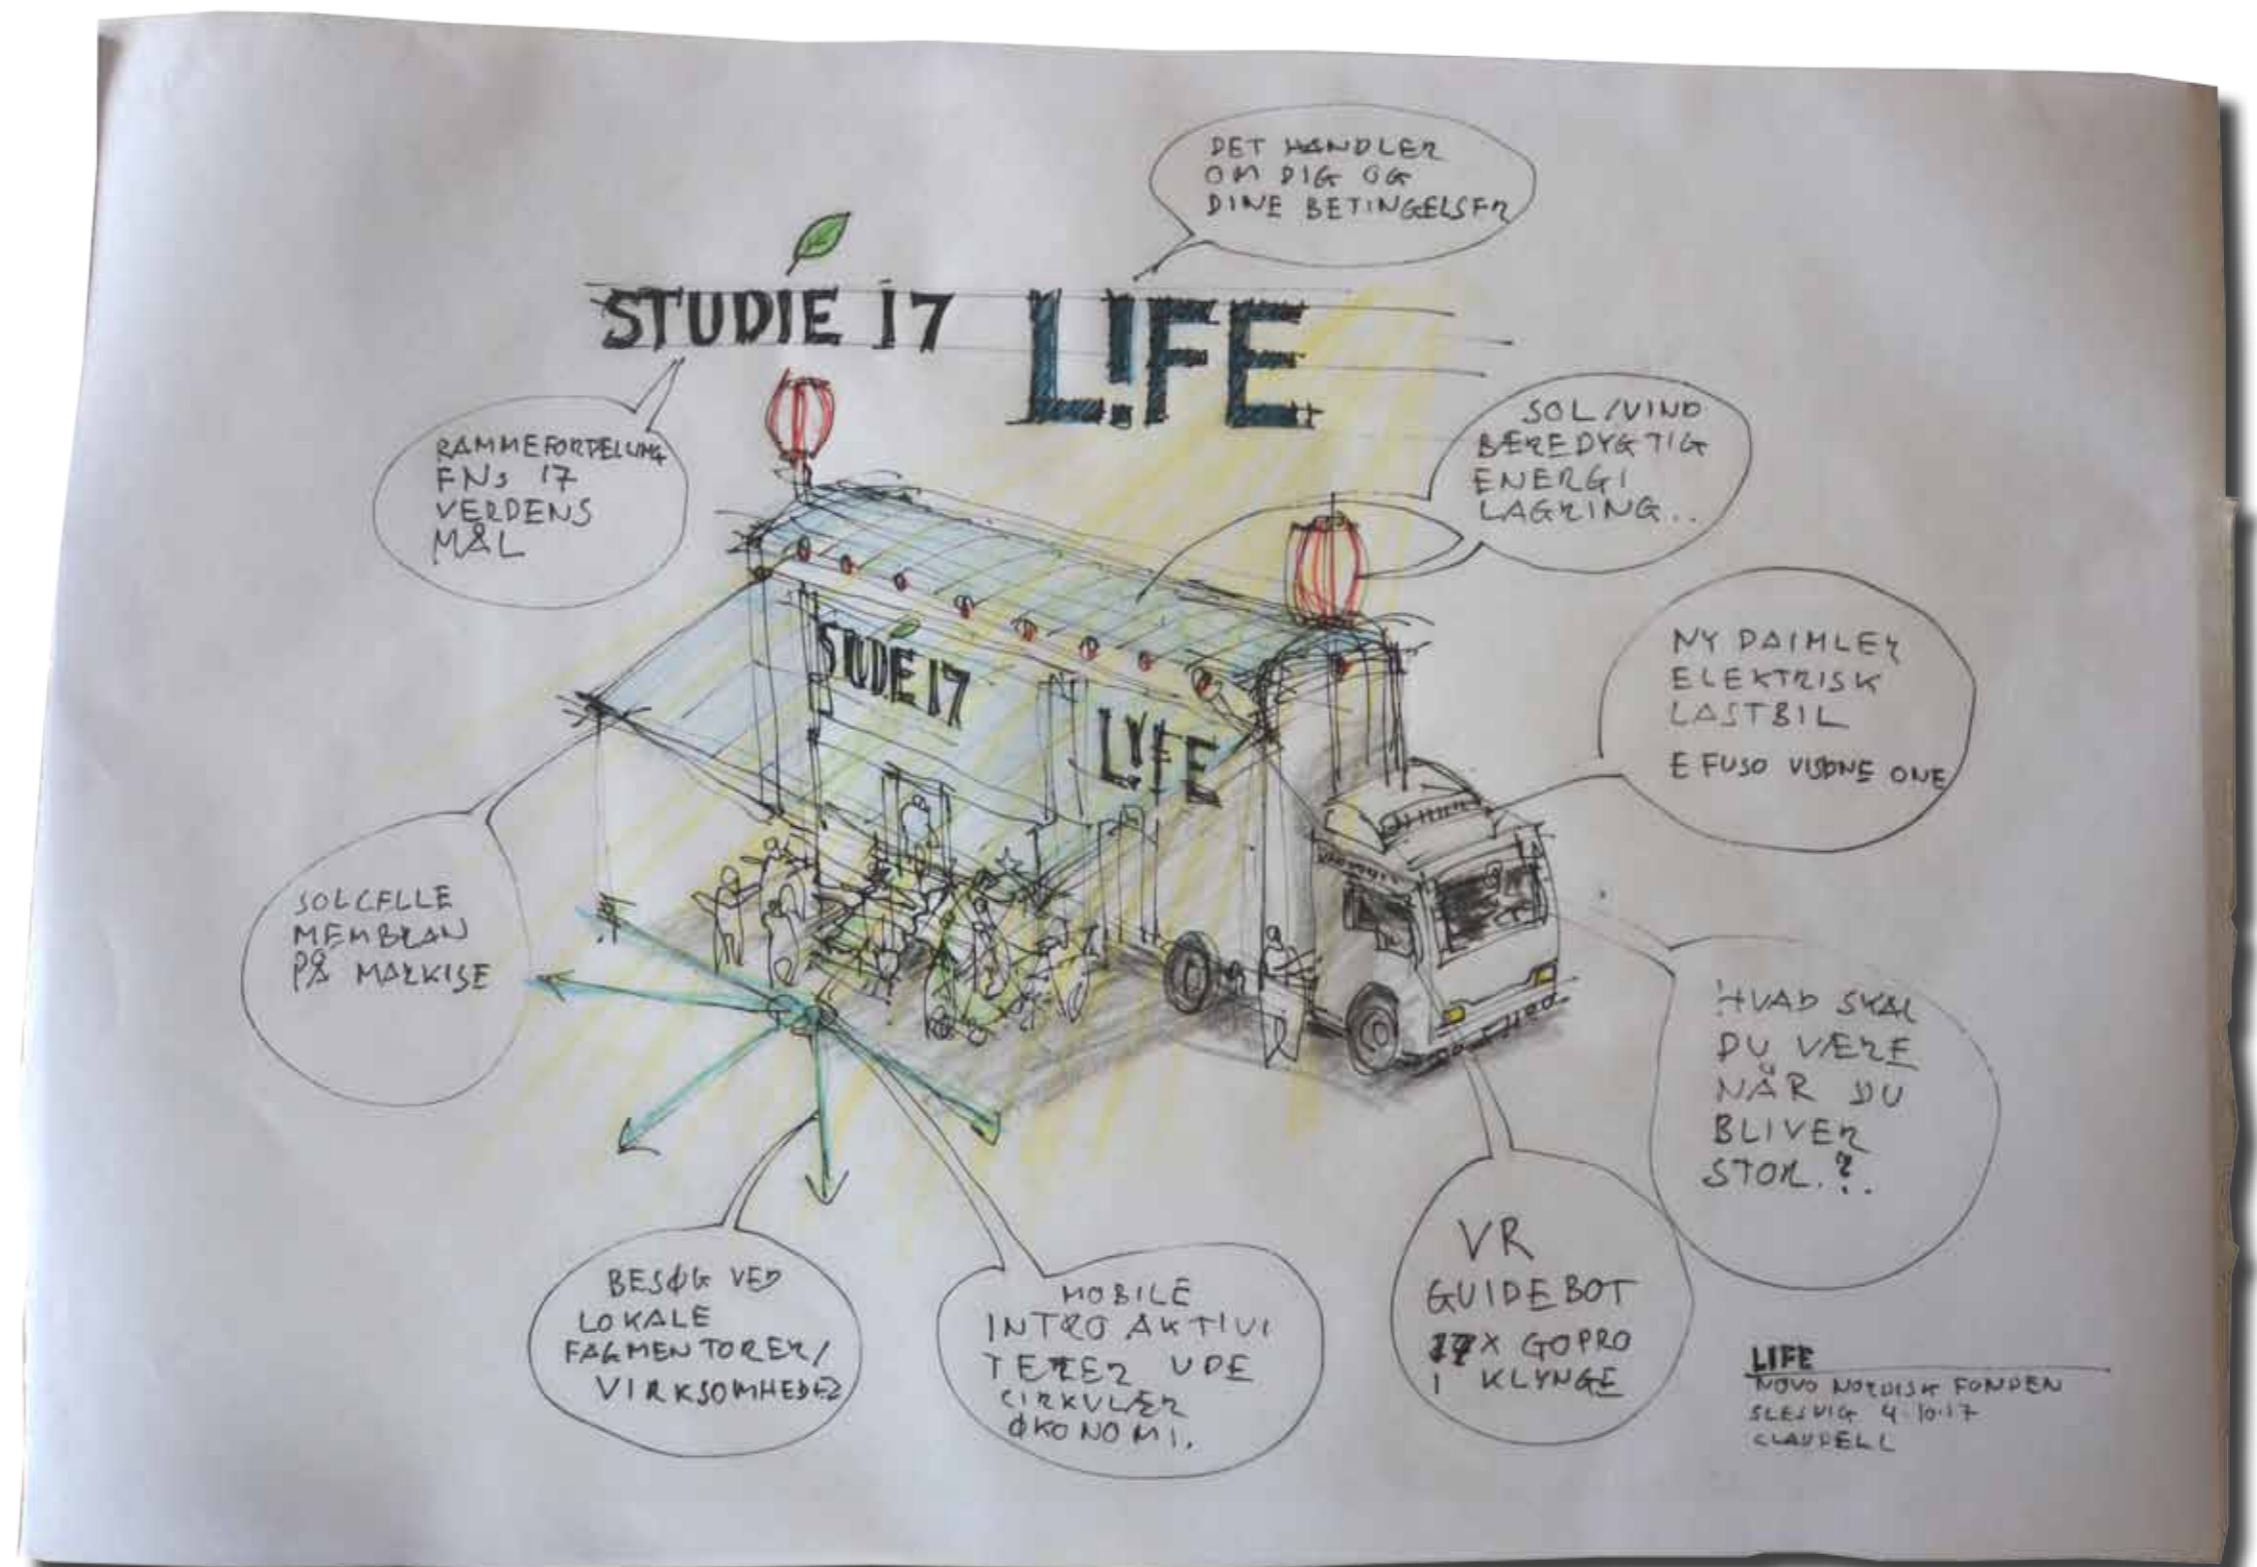 DET HANDLER
OM DIG OG
DINE BETINGELSER
STUDIE 17 L!FE
RAMMEFORTELLING
FNs 17
VERDENS
MÅL
SOL/VIND
BÆREDYGTIG
ENERGI
LAGRING..
NY DAIMLER
ELEKTRISK
LASTBIL
E FUSO VISONE ONE
STUDIE 17
L!FE
SOLCELLE
MEMBRAN
PÅ MARKISE
HVAD SKAL
DU VÆRE
NÅR DU
BLIVER
STOR.?.
BESØG VED
LOKALE
FAGMENTORER/
VIRKSOMHEDER
MOBILE
INTRO AKTIVI
TETER UDE
CIRKULÆR
ØKONOMI.
VR
GUIDEBOT
17X GOPRO
I KLYNGE
LIFE
NOVO NORDISK FONDEN
SLESVIG 4.10.17